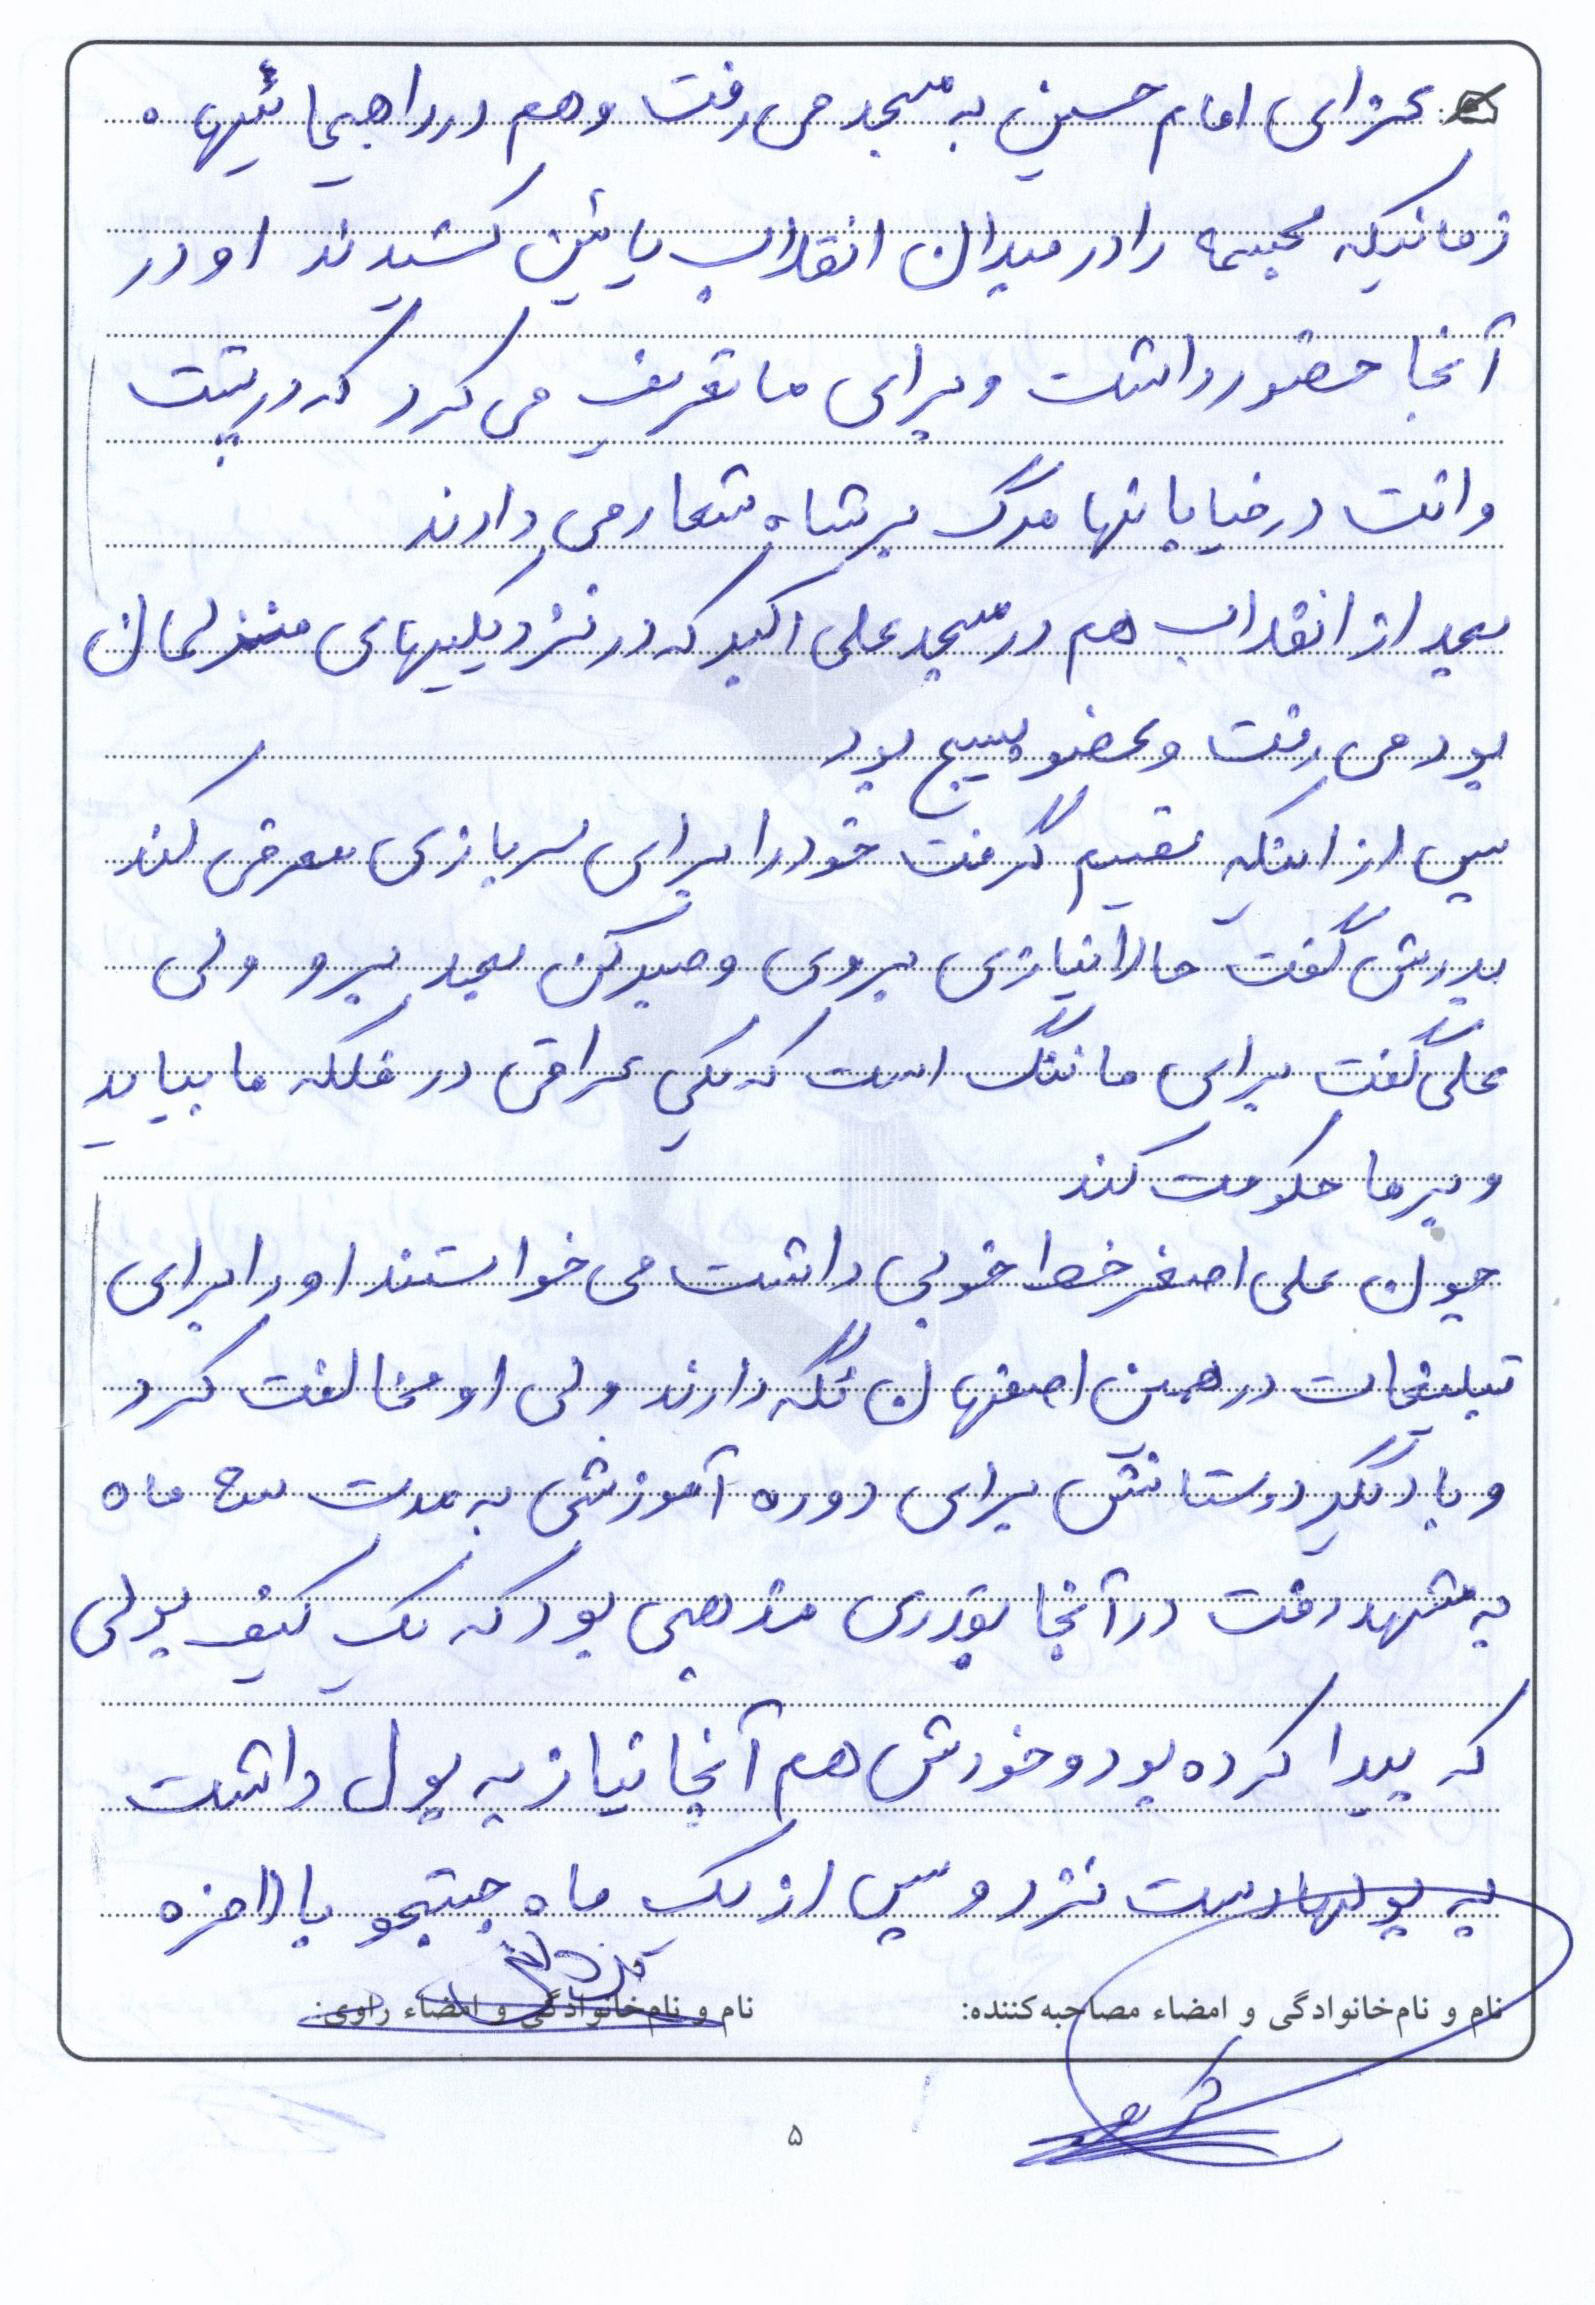 عزای امام حسین به مسجد می رفت و هم در راهپیمائیها ه
زمانیکه مجسمه را در میدان انقلاب پائین کشیدند او در
آنجا حضور داشت و برای ما تعریف می کرد که در پشت
وانت در خیابانها مرگ بر شاه شعار می دادند
بعد از انقلاب هم در مسجد علی اکبر که در نزدیکیهای منزلمان
بود می رفت و عضو بسیج بود
پس از اینکه تصمیم گرفت خود را برای سربازی معرفی کند
پدرش گفت حالا نیازی بروی و صبر کن بعد برو ولی
علی گفت برای ما ننگ است که یکی عراقی در مملکه ما بیاید
و بر ما حکومت کند
چون علی اصغر خط خوبی داشت می خواستند او را برای
تبلیغات در همین اصفهان نگه دارند ولی او مخالفت کرد
و با دیگر دوستانش برای دوره آموزشی به مدت سه ماه
به مشهد رفت در آنجا بقدری مذهبی بود که یک کیف پولی
که پیدا کرده بود و خودش هم آنجا نیاز به پول داشت
به پولها دست نزد و پس از یک ماه جستجو بالاخره
نام و نام‌خانوادگی و امضاء مصاحبه‌کننده: نام و نام‌خانوادگی و امضاء راوی:
۵